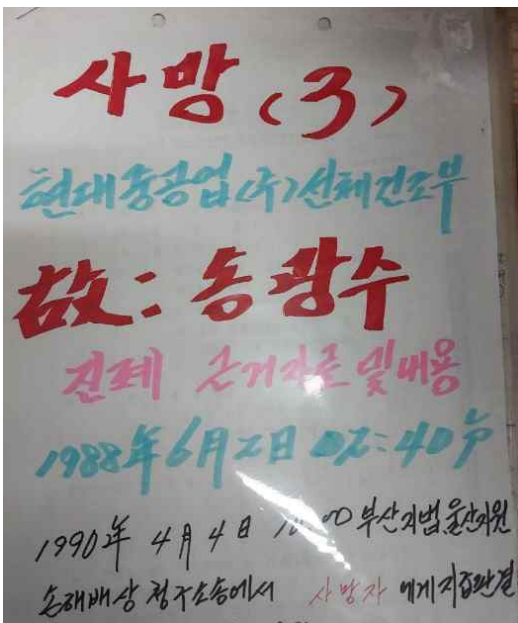 사망(3)
현대중공업(주)선체건조부
故: 송광수
진폐 근거자료 및 내용
1988年 6月 2日 02:40分
1990年 4月 4日 10:00 부산지법울산지원
손해배상 청구소송에서 사망자에게지급판결